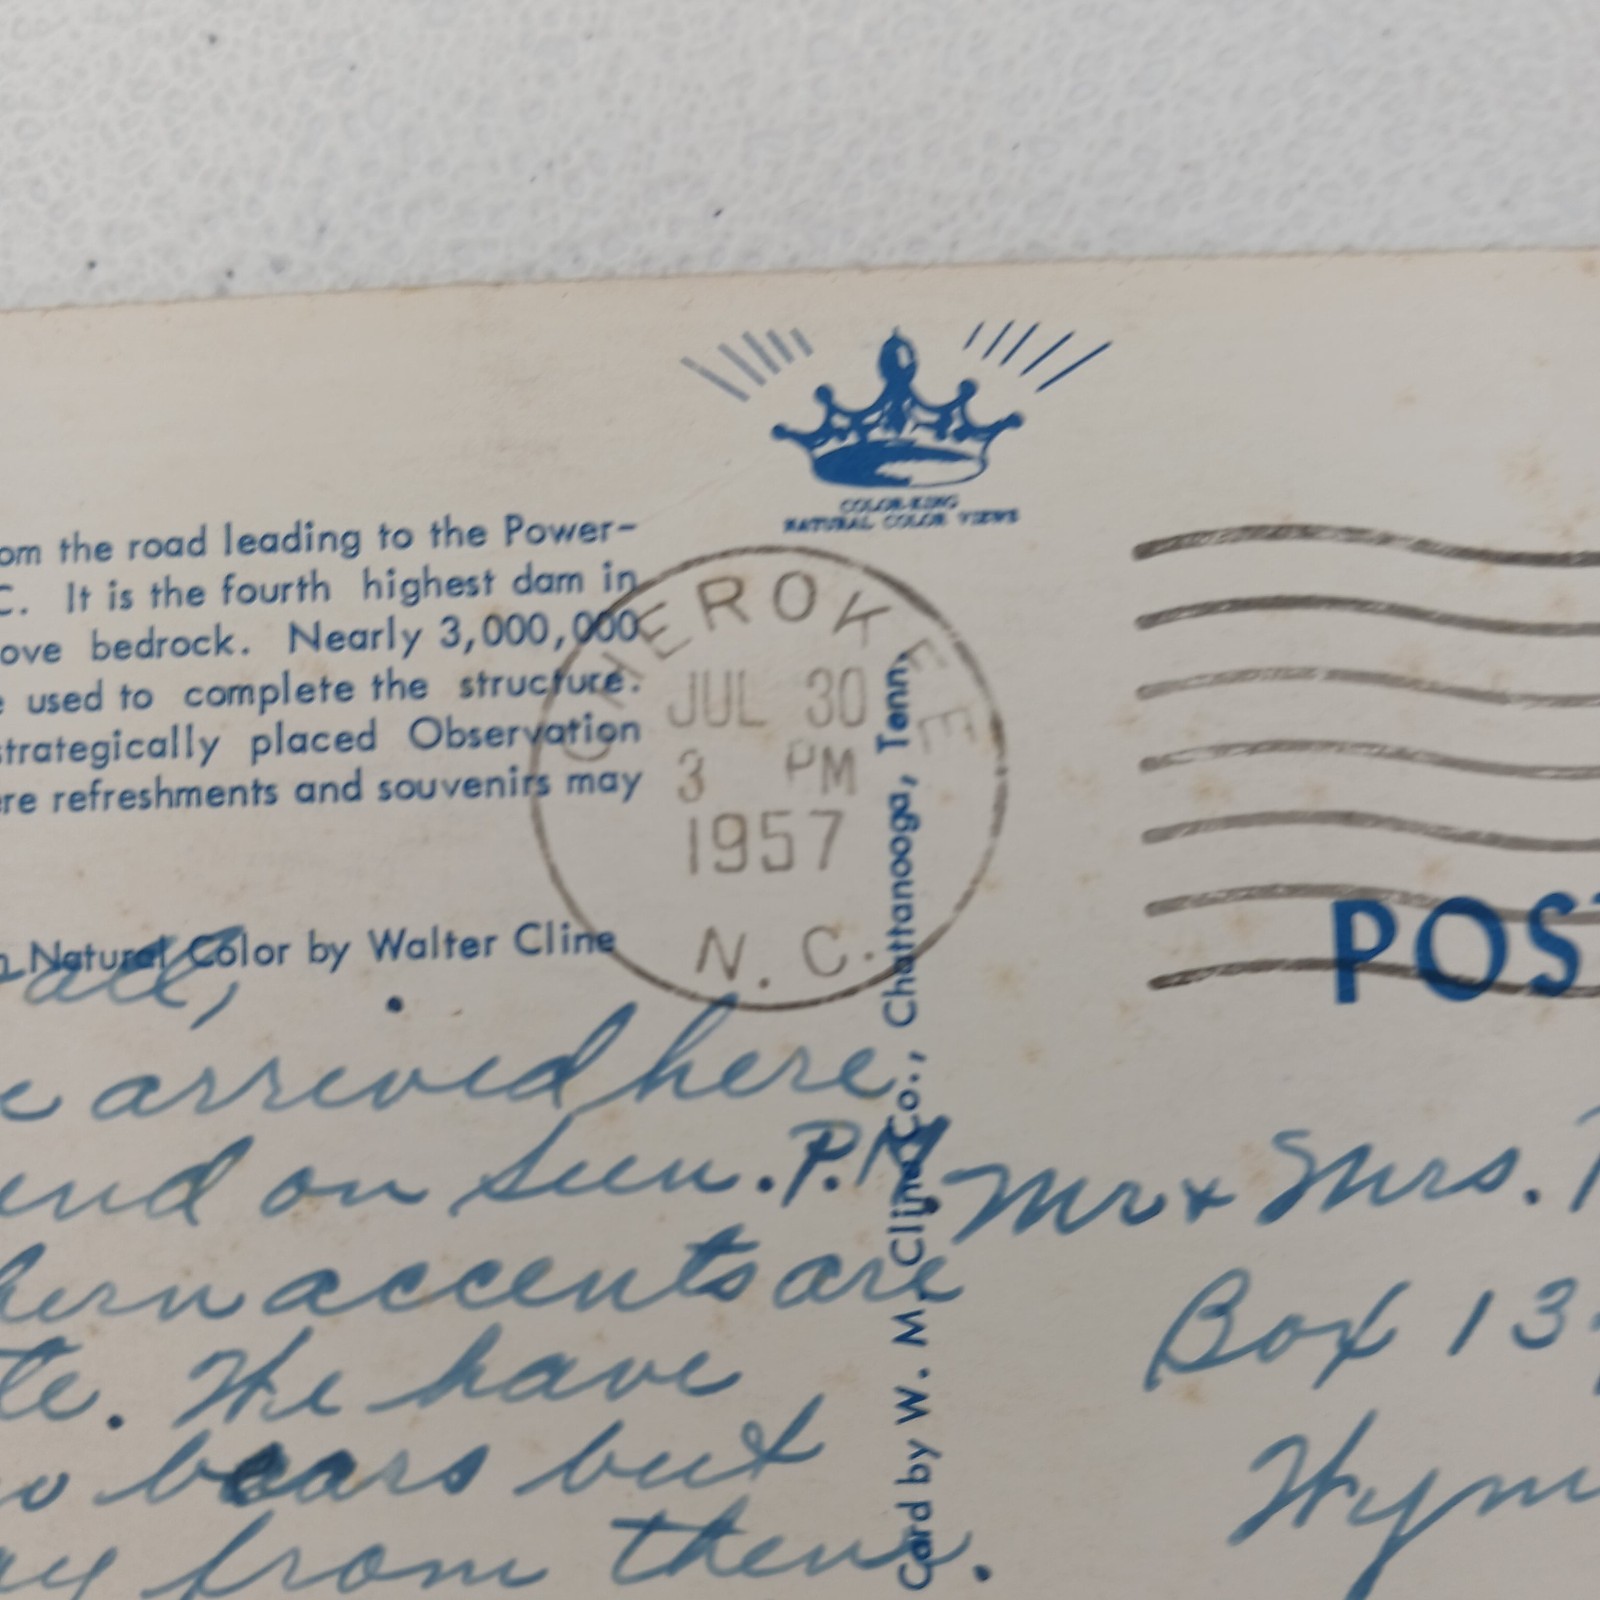 COLOR-KING
NATURAL COLOR VIEWS
om the road leading to the Power-
C. It is the fourth highest dam in
ove bedrock. Nearly 3,000,000
e used to complete the structure.
strategically placed Observation
ere refreshments and souvenirs may
n Natural Color by Walter Cline
CHEROKEE
JUL 30
3 PM
1957
N. C.
Card by W. M. Cline Co., Chattanooga, Tenn.
POST
all,
e arrived here
end on Sun. P.M.
hern accents are
te. We have
no bears but
ay from them.
Mr & Mrs.
Box 13
Wym